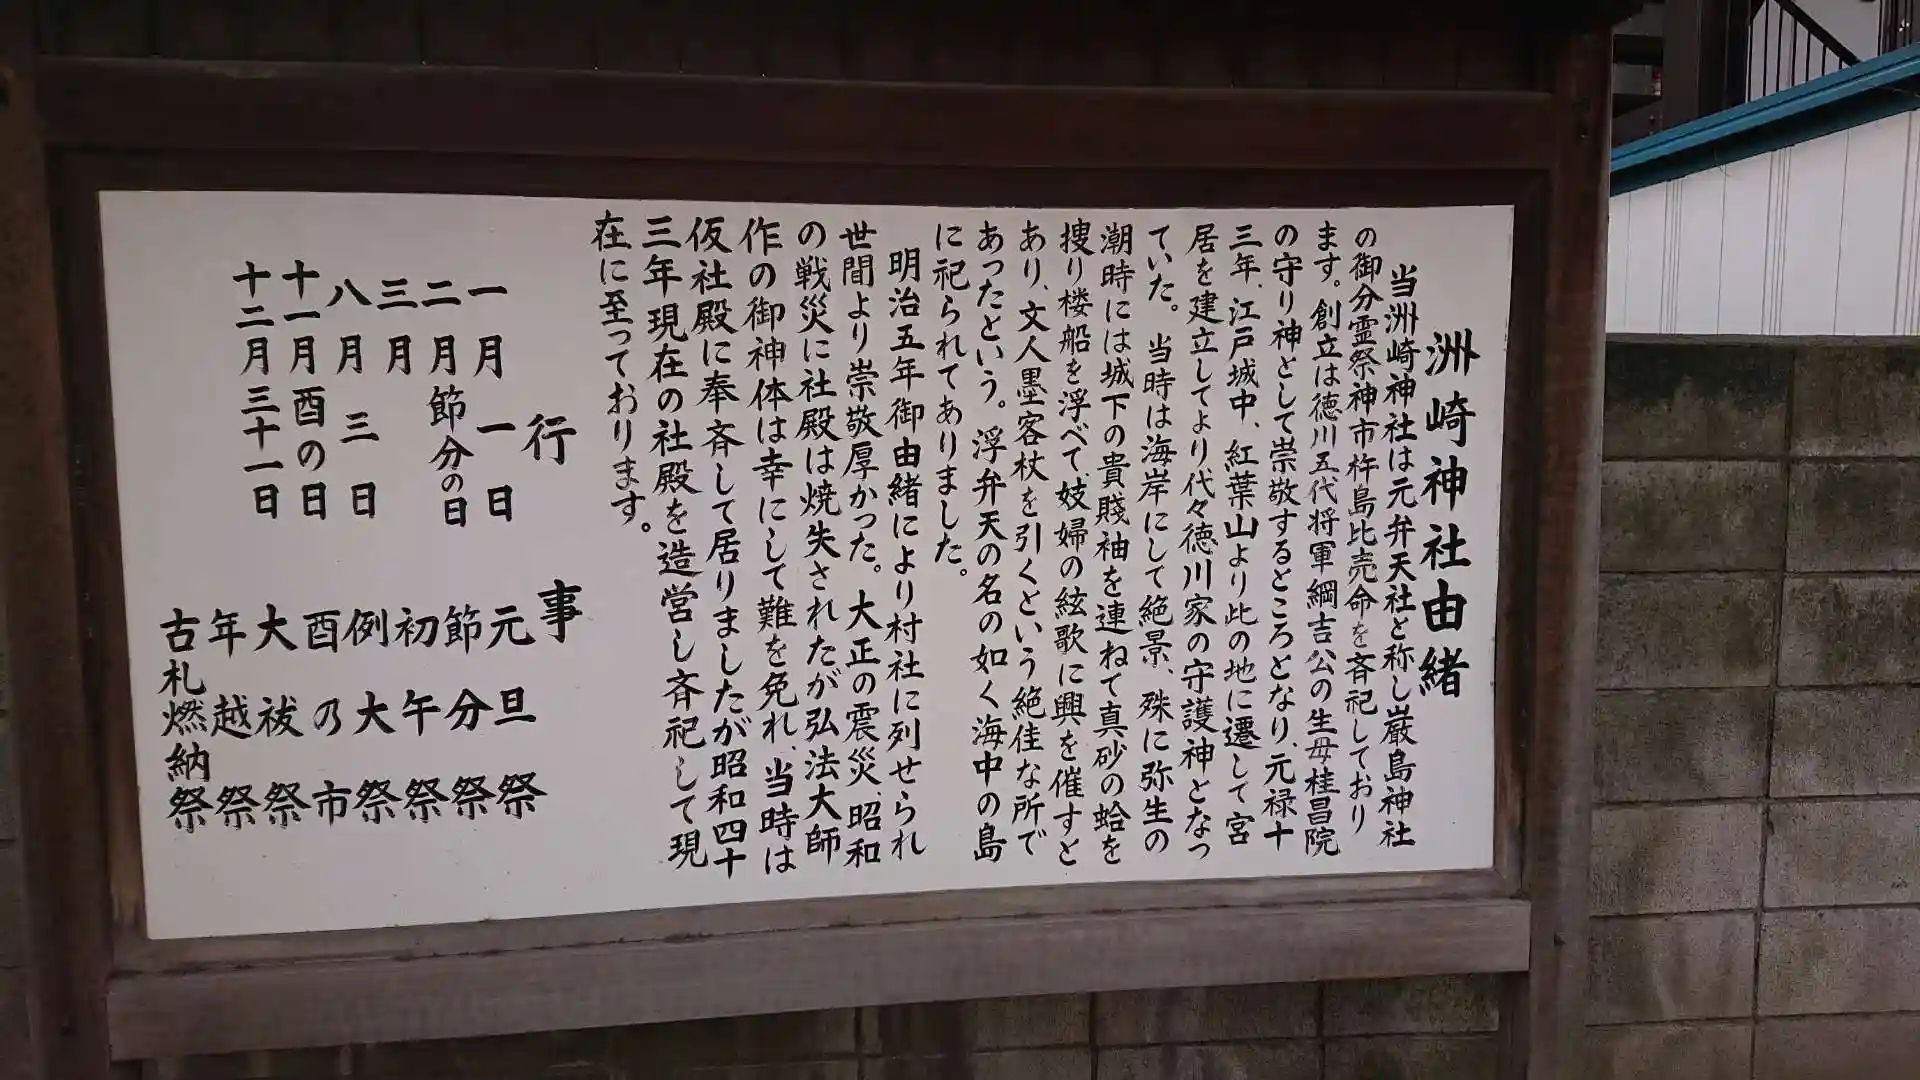 洲崎神社由緒
当洲崎神社は元弁天社と称し巌島神社
の御分霊祭神市杵島比売命を斉祀しており
ます。創立は徳川五代将軍綱吉公の生母桂昌院
の守り神として崇敬するところとなり、元禄十
三年、江戸城中、紅葉山より此の地に遷して宮
居を建立してより代々徳川家の守護神となっ
ていた。当時は海岸にして絶景、殊に弥生の
潮時には城下の貴賤袖を連ねて真砂の蛤を
捜り楼船を浮べて、妓婦の絃歌に興を催すと
あり、文人墨客杖を引くという絶佳な所で
あったという。浮弁天の名の如く海中の島
に祀られてありました。
明治五年御由緒により村社に列せられ
世間より崇敬厚かった。大正の震災、昭和
の戦災に社殿は焼失されたが弘法大師
作の御神体は幸にして難を免れ、当時は
仮社殿に奉斉して居りましたが昭和四十
三年現在の社殿を造営し斉祀して現
在に至っております。
行事
一月一日 元旦祭
二月節分の日 節分祭
三月 初午祭
八月三日 例大祭
十一月酉の日 酉の市
十二月三十一日 大祓祭
年越祭
古札燃納祭